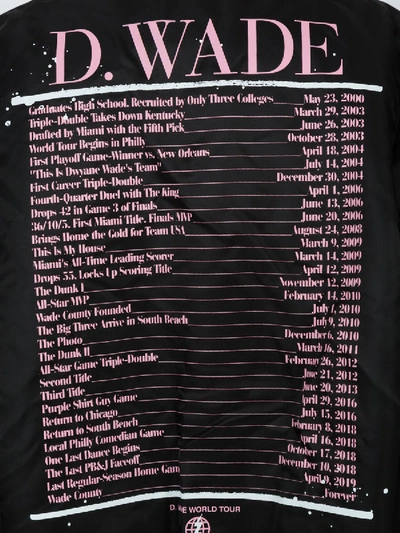 D. WADE
Graduates High School. Recruited by Only Three Colleges May 23, 2000
Triple-Double Takes Down Kentucky March 29, 2003
Drafted by Miami with the Fifth Pick June 26, 2003
World Tour Begins in Philly October 28, 2003
First Playoff Game-Winner vs. New Orleans April 18, 2004
"This Is Dwyane Wade's Team" July 14, 2004
First Career Triple-Double December 30, 2004
Fourth-Quarter Duel with The King April 1, 2006
Drops 42 in Game 3 of Finals June 13, 2006
36/10/5. First Miami Title. Finals MVP June 20, 2006
Brings Home the Gold for Team USA August 24, 2008
This Is My House March 9, 2009
Miami's All-Time Leading Scorer March 14, 2009
Drops 55. Locks Up Scoring Title April 12, 2009
The Dunk I November 12, 2009
All-Star MVP February 14, 2010
Wade County Founded July 1, 2010
The Big Three Arrive in South Beach July 9, 2010
The Photo December 6, 2010
The Dunk II March 16, 2011
All-Star Game Triple-Double February 26, 2012
Second Title June 21, 2012
Third Title June 20, 2013
Purple Shirt Guy Game April 29, 2016
Return to Chicago July 15, 2016
Return to South Beach February 8, 2018
Local Philly Comedian Game April 16, 2018
One Last Dance Begins October 17, 2018
The Last PB&J Faceoff December 10, 2018
Last Regular-Season Home Game April 9, 2019
Wade County Forever
D. WADE WORLD TOUR